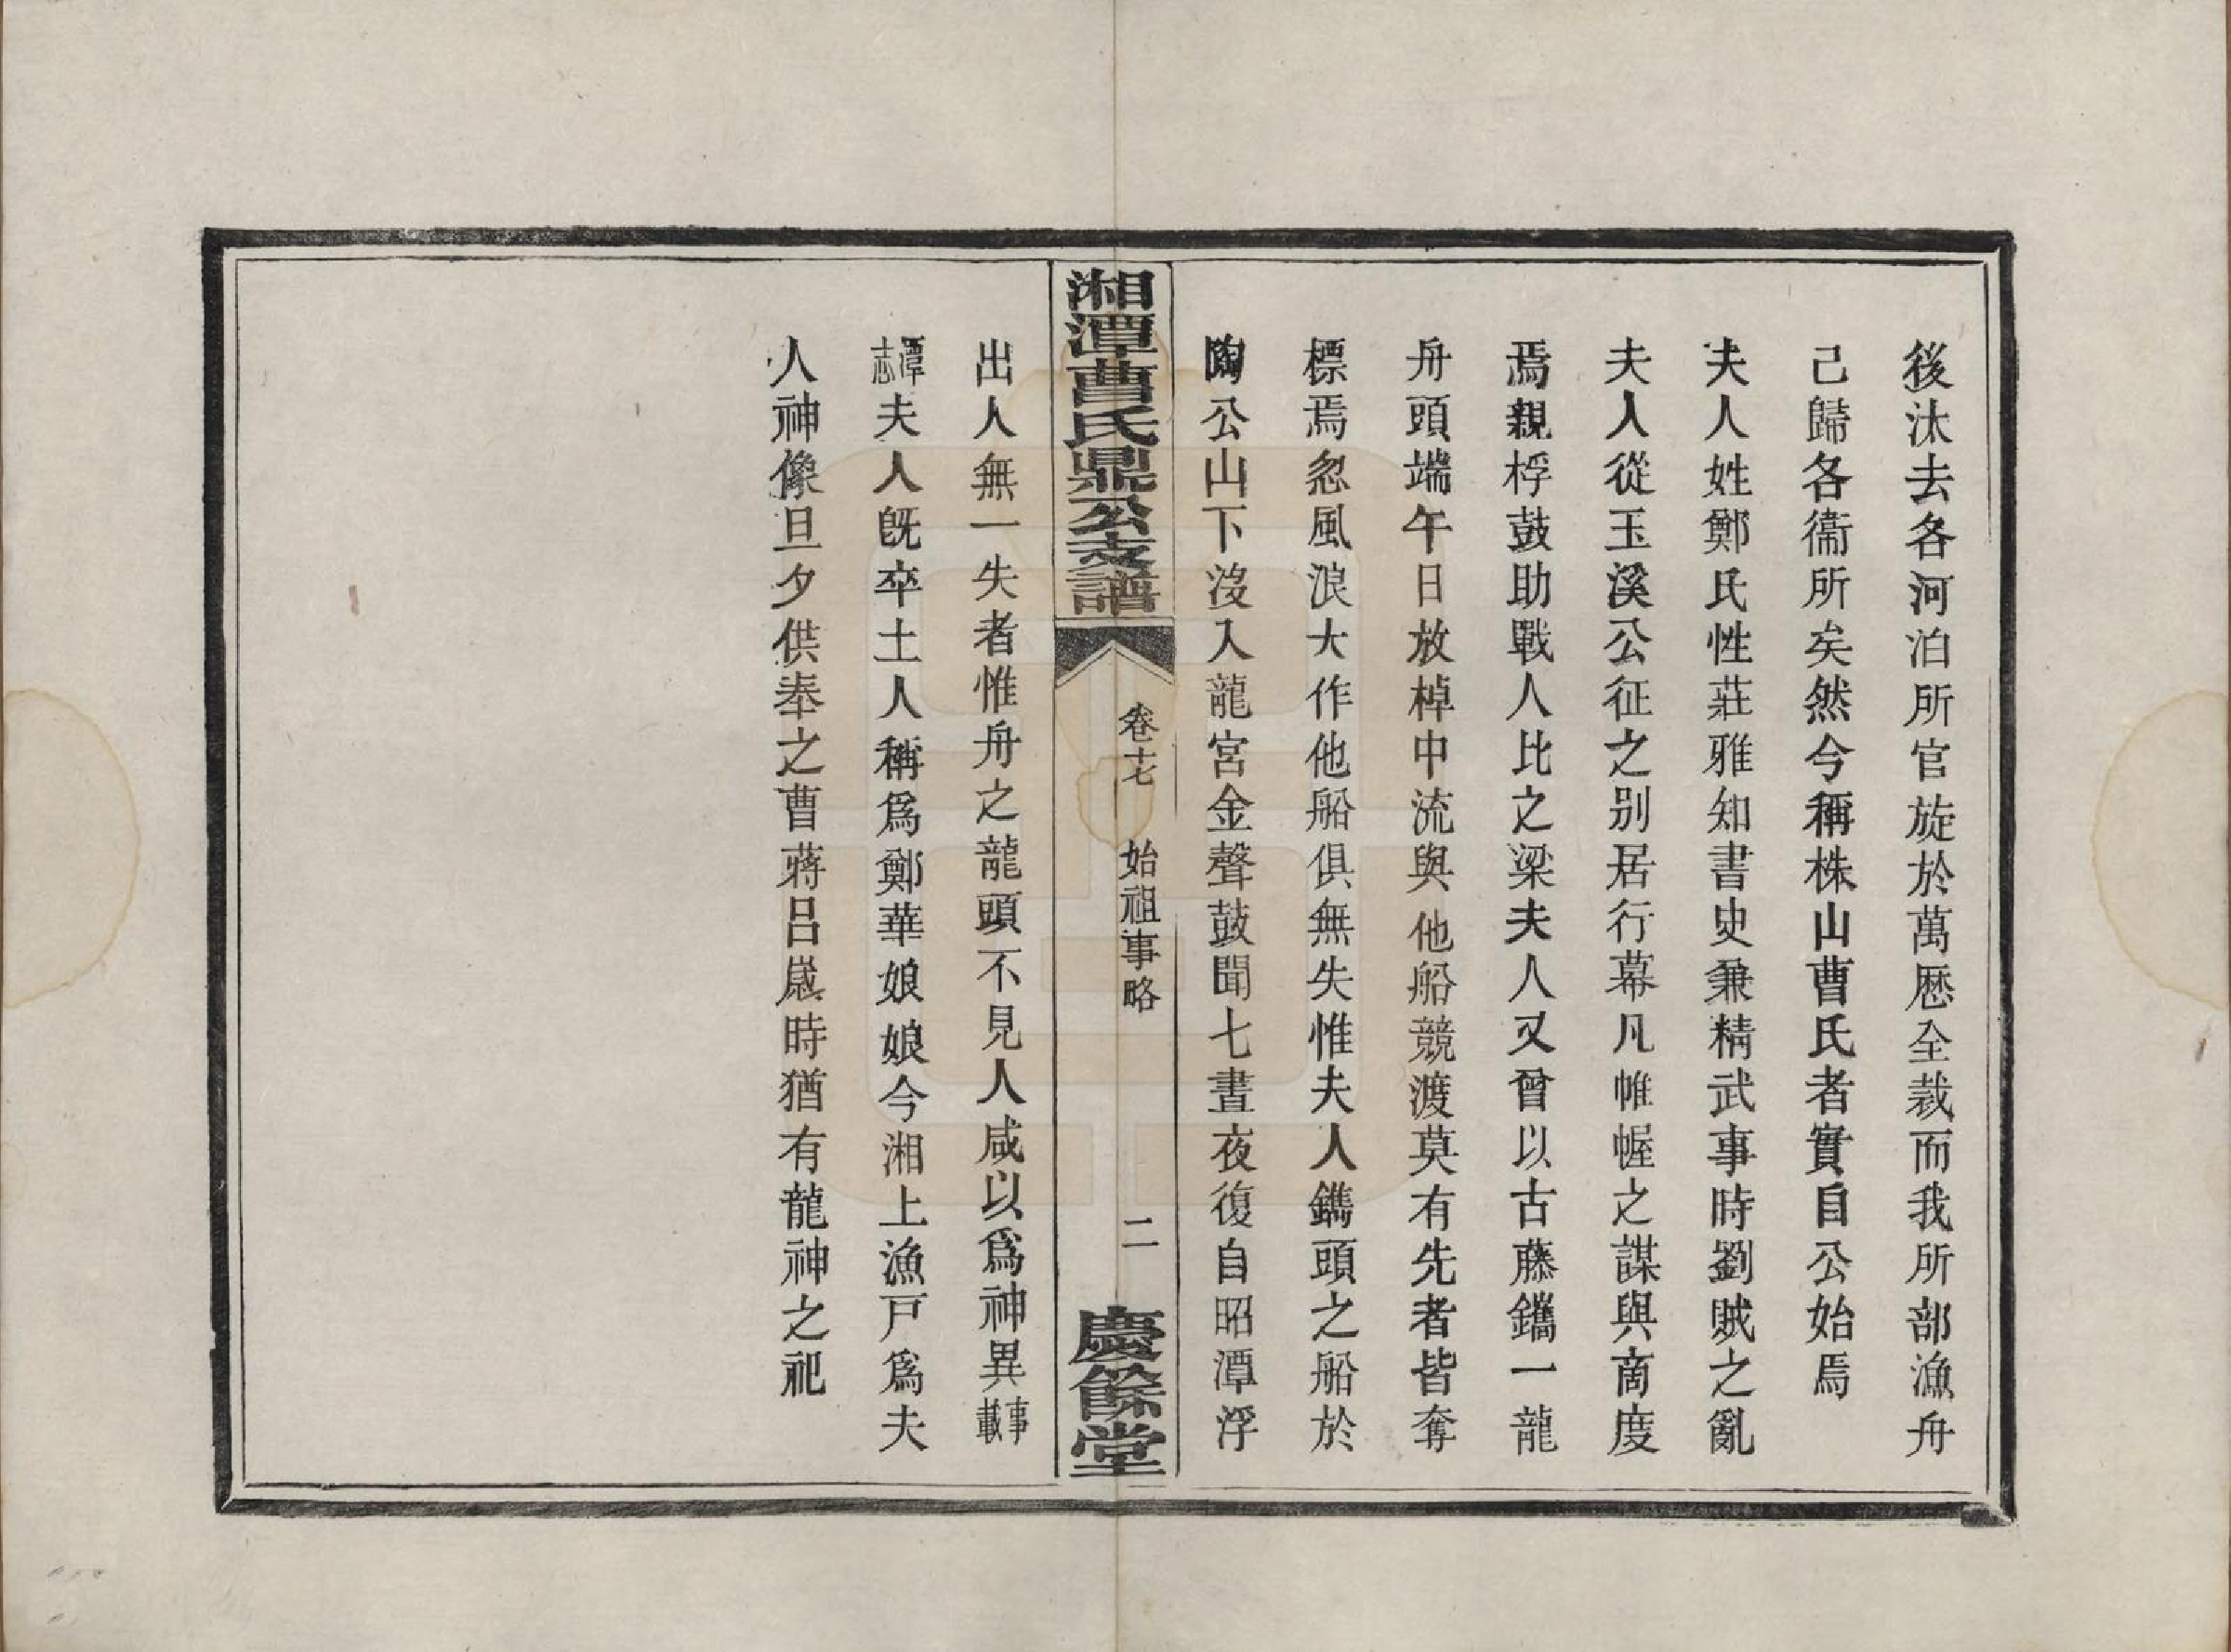 後汰去各河泊所官旋於萬厯全裁而我所部漁舟
己歸各衞所矣然今稱株山曹氏者實自公始焉
夫人姓鄭氏性莊雅知書史兼精武事時劉賊之亂
夫人從玉溪公征之别居行幕凡帷幄之謀與商度
焉親桴鼓助戰人比之梁夫人又曾以古藤鐫一龍
舟頭端午日放棹中流與他船競渡莫有先者皆奪
標焉忽風浪大作他船俱無失惟夫人鐫頭之船於
陶公山下沒入龍宮金聲鼓聞七晝夜復自昭潭浮
湘潭曹氏鼎公支譜
卷十七 始祖事略 二
慶餘堂
出人無一失者惟舟之龍頭不見人咸以爲神異事載
潭志夫人旣卒土人稱爲鄭華娘娘今湘上漁戸爲夫
人神像旦夕供奉之曹蔣呂嵗時猶有龍神之祀